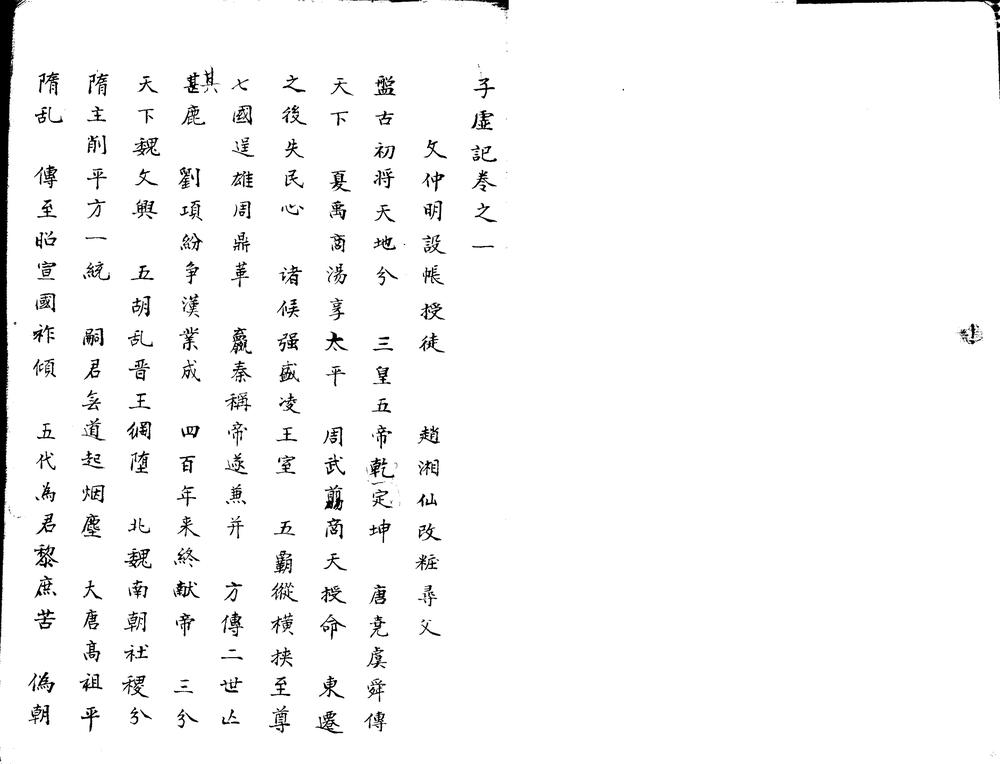 子虛記卷之一
文仲明設帳授徒 趙湘仙改粧尋父
盤古初將天地分 三皇五帝乾定坤 唐堯虞舜傳
天下 夏禹商湯享太平 周武翦商天授命 東遷
之後失民心 诸候强盛凌王室 五霸縱横挾至尊
七國逞雄周鼎革 嬴秦稱帝遂兼并 方傳二世亾
其鹿 劉項紛争漢業成 四百年来終献帝 三分
天下魏文興 五胡乱晋王網堕 北魏南朝社稷分
隋主削平方一統 嗣君無道起烟塵 大唐高祖平
隋乱 傳至昭宣國祚傾 五代為君黎庶苦 偽朝